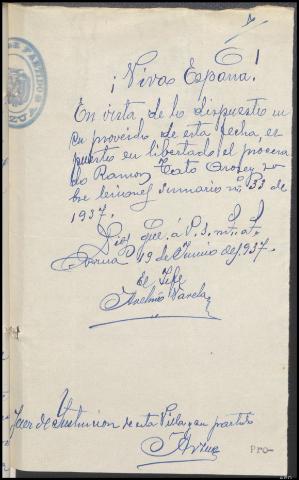 ¡Viva España!
En vista de lo dispuesto en
su proveido de esta fecha, es
puesto en libertad el procesa
do Ramon so
bre lesiones sumario nº 33 de
1937.
Dios gue. á V. S. m. a.
19 de Junio de 1937.
El Jefe
Varela
Juez de Instrucion de esta Villa y su partido
Arzua
Pro-